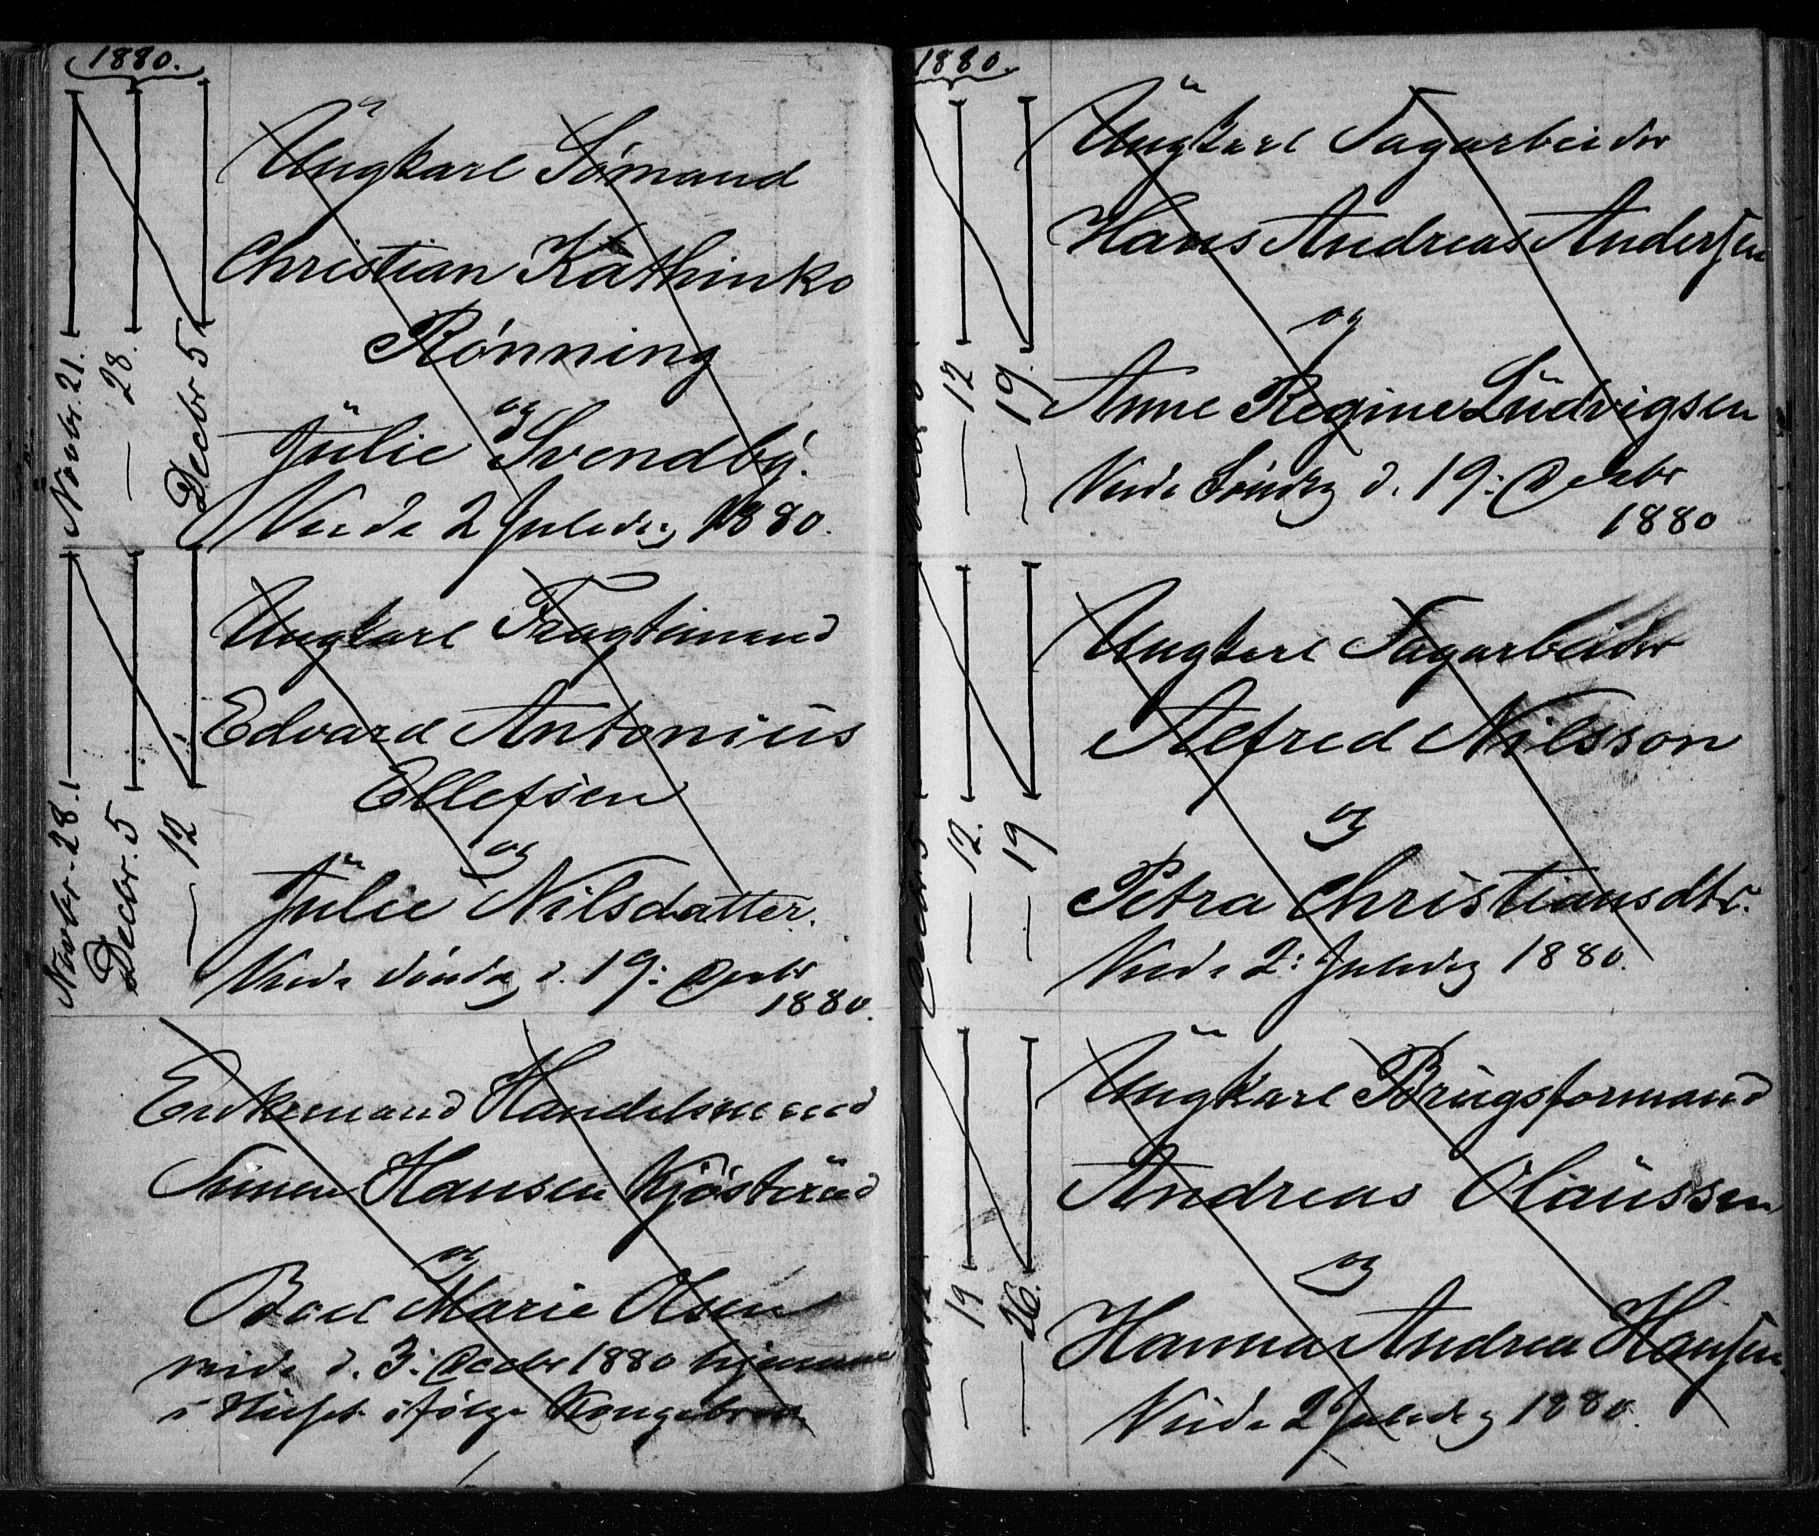 1880.
Novbr. 21.
— 28.
Decbr 5
Ungkarl Sømand
Christian Kathinko
Rønning
og
Julie Svendby.
Viede 2 Juledag 1880.
Novbr. 28.
Decbr. 5
— 12
Ungkarl Fragtemand
Edvard Antonius
Ellefsen
og
Julie Nilsdatter.
Viede Søndag d. 19: Decbr
1880.
Enkemand Handelsmand
Simen Hansen Kjøsterud
og
Boel Marie Olsen
viede d. 3: Decbr 1880 hjemme
i Huset ifølge Kongebrev.
1880.
— 12
— 19.
Ungkarl Sagarbeider
Hans Andreas Andersen
og
Anne Regine Ludvigsen
Viede Søndag d. 19: Decbr
1880
Decbr. 5
— 12.
— 19
Ungkarl Sagarbeider
Alfred Nilsson
og
Petra Christiansdtr.
Viede 2: Juledag 1880.
Decbr 12
— 19
— 26.
Ungkarl Brugsformand
Andreas Olaussen
og
Hanna Andrea Hansen
Viede 2 Juledag 1880.